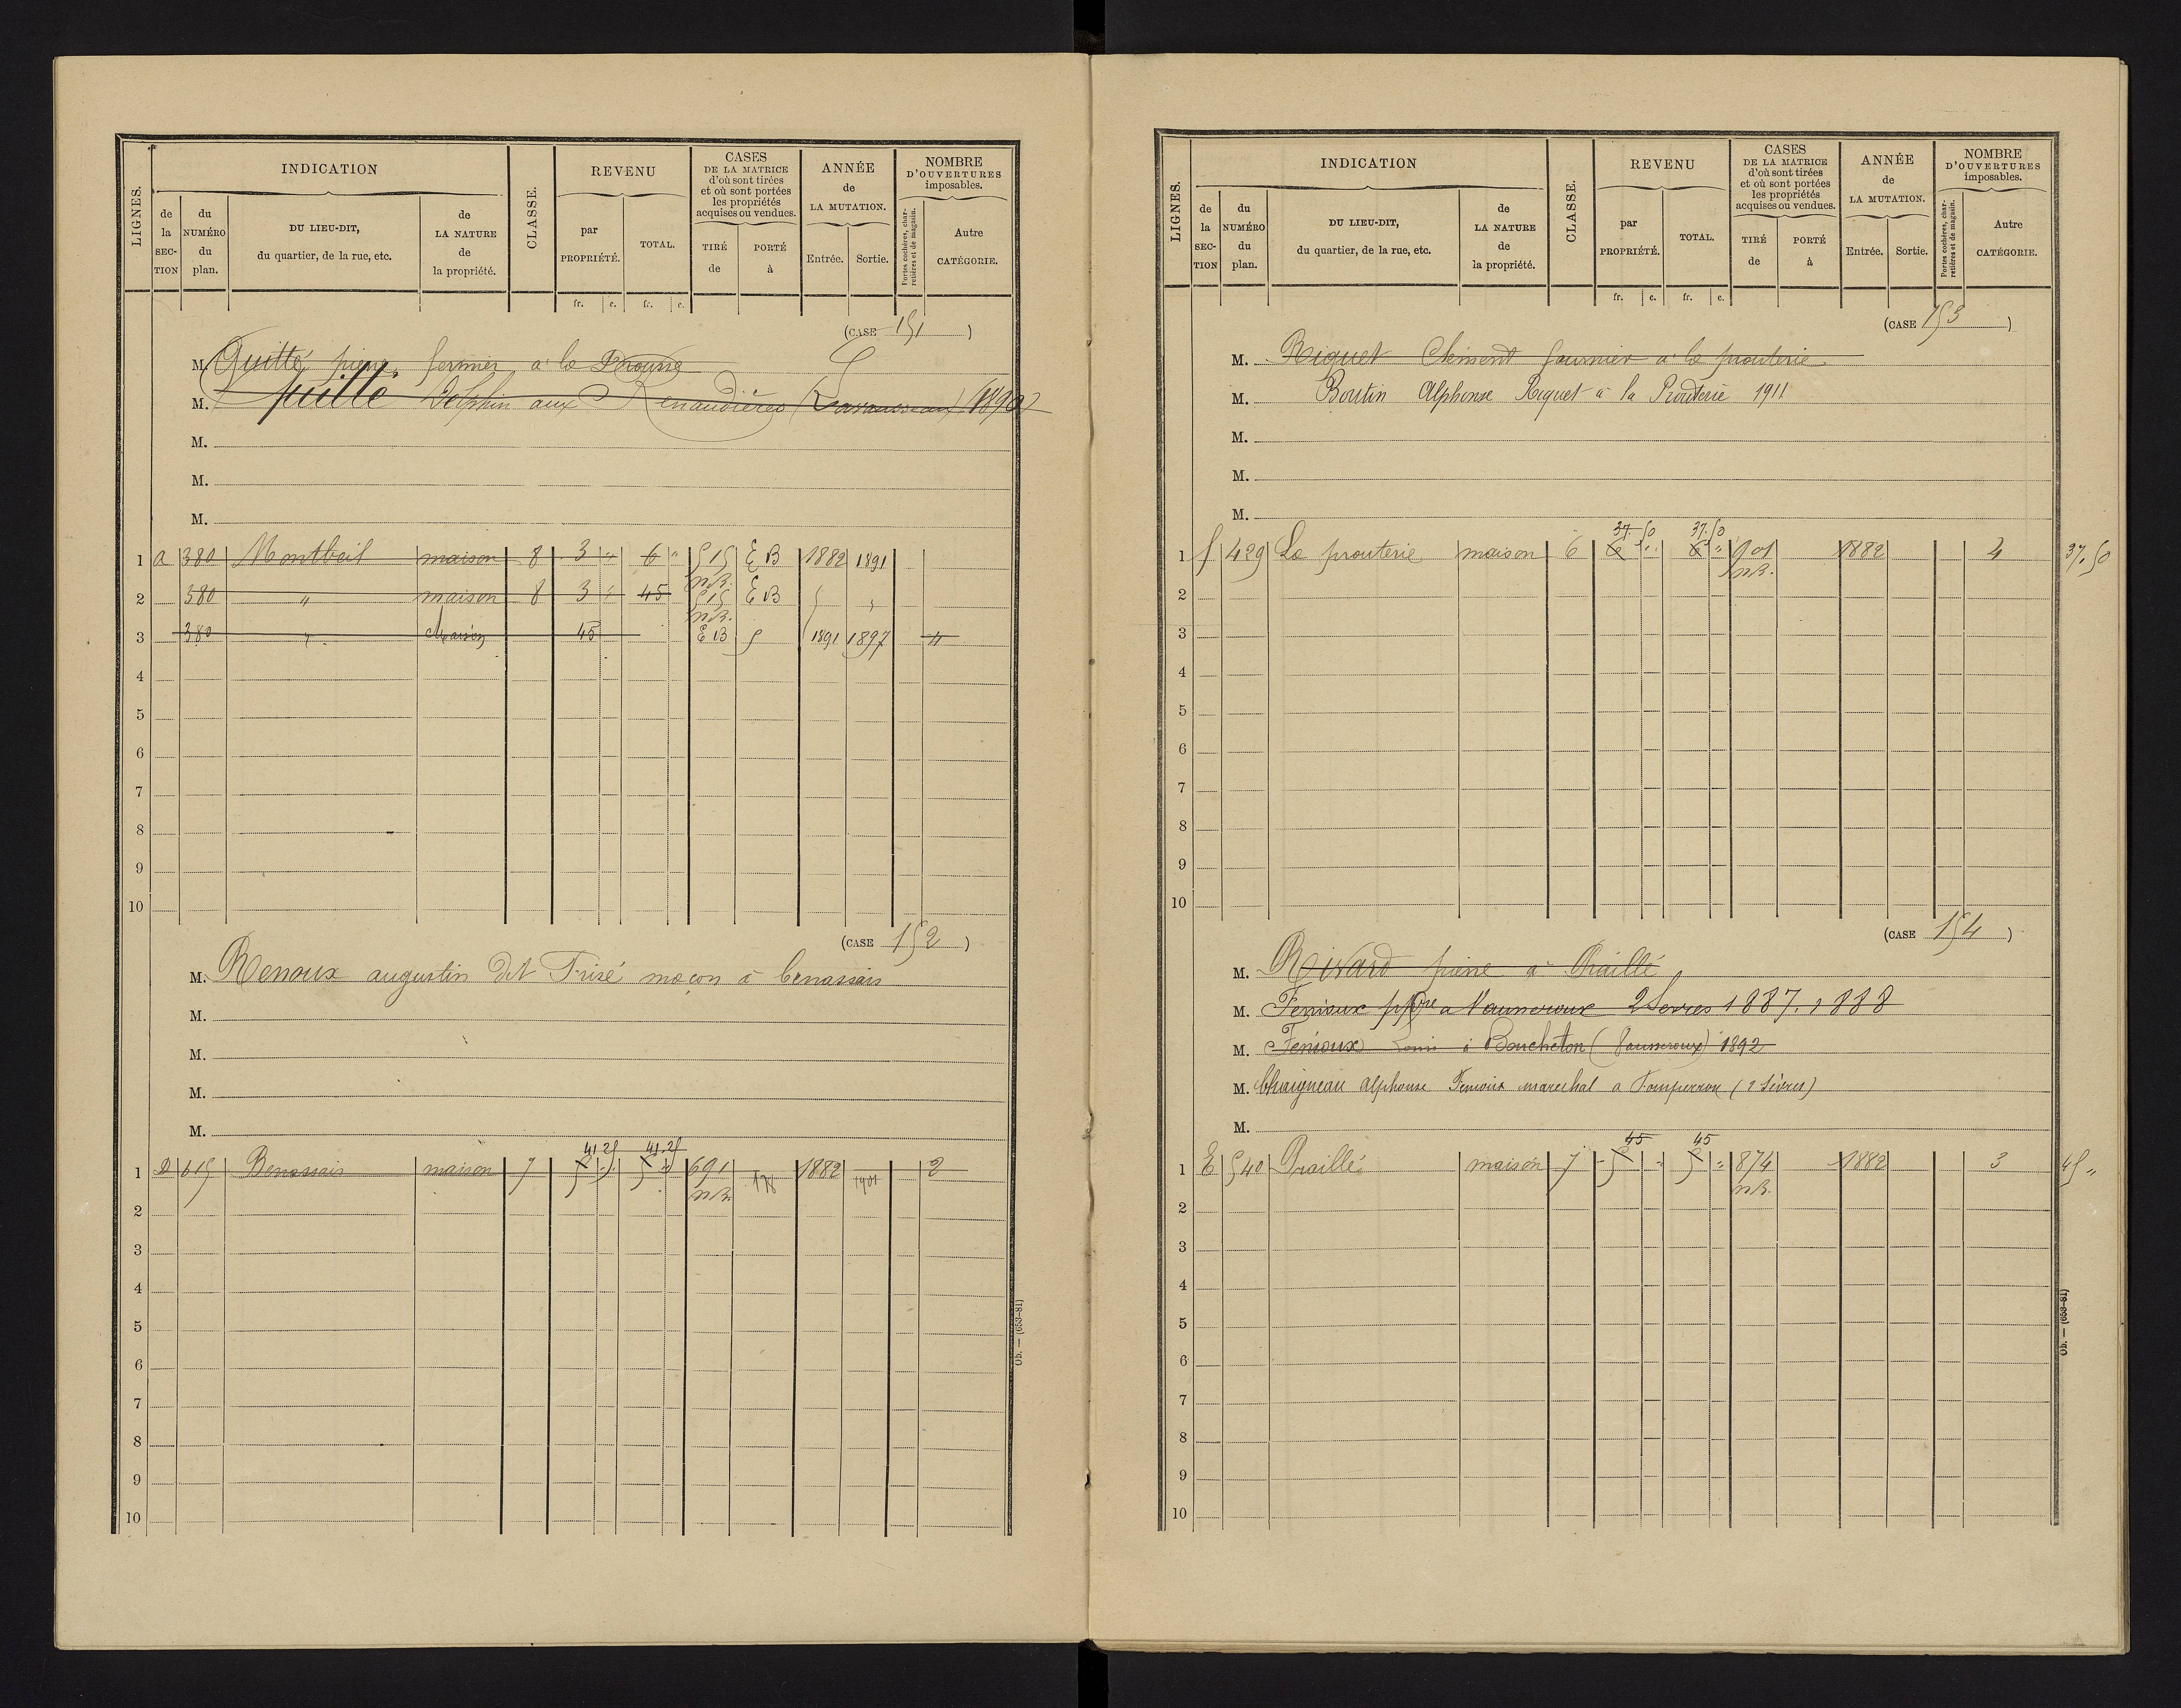 LIGNES.
INDICATION
de la SECTION
du NUMÉRO du plan.
DU LIEU-DIT, du quartier, de la rue, etc.
de LA NATURE de la propriété.
CLASSE.
REVENU
par PROPRIÉTÉ.
TOTAL.
fr. c. fr. c.
CASES DE LA MATRICE d'où sont tirées et où sont portées les propriétés acquises ou vendues.
TIRÉ de
PORTÉ à
ANNÉE de LA MUTATION.
Entrée. Sortie.
NOMBRE D'OUVERTURES imposables.
Portes cochères, charretières et de magasin.
Autre CATÉGORIE.
(CASE 151 )
M. Quitté pierre fermier à la
M. Delphin aux Renaudières (Lavausseau) 1890
M.
M.
M.
1 a 380 Montbeil maison 8 3 " 6 " 515 EB 1882 1891
n.B.
2 380 " maison 8 3 " 45 515 EB
n.B.
3 380 " Maison 45 EB 1891 1897
4
5
6
7
8
9
10
(CASE 152 )
M. Renoux augustin dit Frisé maçon à benassais
M.
M.
M.
M.
41.25 41.25
1 D 615 Benassais maison 7 5 " 5 " 691 178 1882 1901 2
n.B.
2
3
4
5
6
7
8
9
10
Ob. — (653-81)
LIGNES.
INDICATION
de la SECTION
du NUMÉRO du plan.
DU LIEU-DIT, du quartier, de la rue, etc.
de LA NATURE de la propriété.
CLASSE.
REVENU
par PROPRIÉTÉ.
TOTAL.
fr. c. fr. c.
CASES DE LA MATRICE d'où sont tirées et où sont portées les propriétés acquises ou vendues.
TIRÉ de
PORTÉ à
ANNÉE de LA MUTATION.
Entrée. Sortie.
NOMBRE D'OUVERTURES imposables.
Portes cochères, charretières et de magasin.
Autre CATÉGORIE.
(CASE 153 )
M. Riquet Clément fournier à la prouterie
M. Boutin Alphonse Riquet à la Prouterie 1911
M.
M.
M.
37.50 37.50
1 f 429 La prouterie maison 6 6 " 6 " 1882 4 37.50
n.B.
2
3
4
5
6
7
8
9
10
(CASE 154 )
M. Rivard pierre à Praillé
M. Fenioux a Vausseroux 2 Sevres 1887.1888
M. Fenioux Louis à Boucheton (Vausseroux) 1892
M. Chaigneau alphonse Fenioux marechal a Fomperron (2 Sèvres)
M.
45 45
1 E 540 Praillé maison 7 5 " 5 " 874 1882 3 45 "
n.B.
2
3
4
5
6
7
8
9
10
Ob. — (653-81)